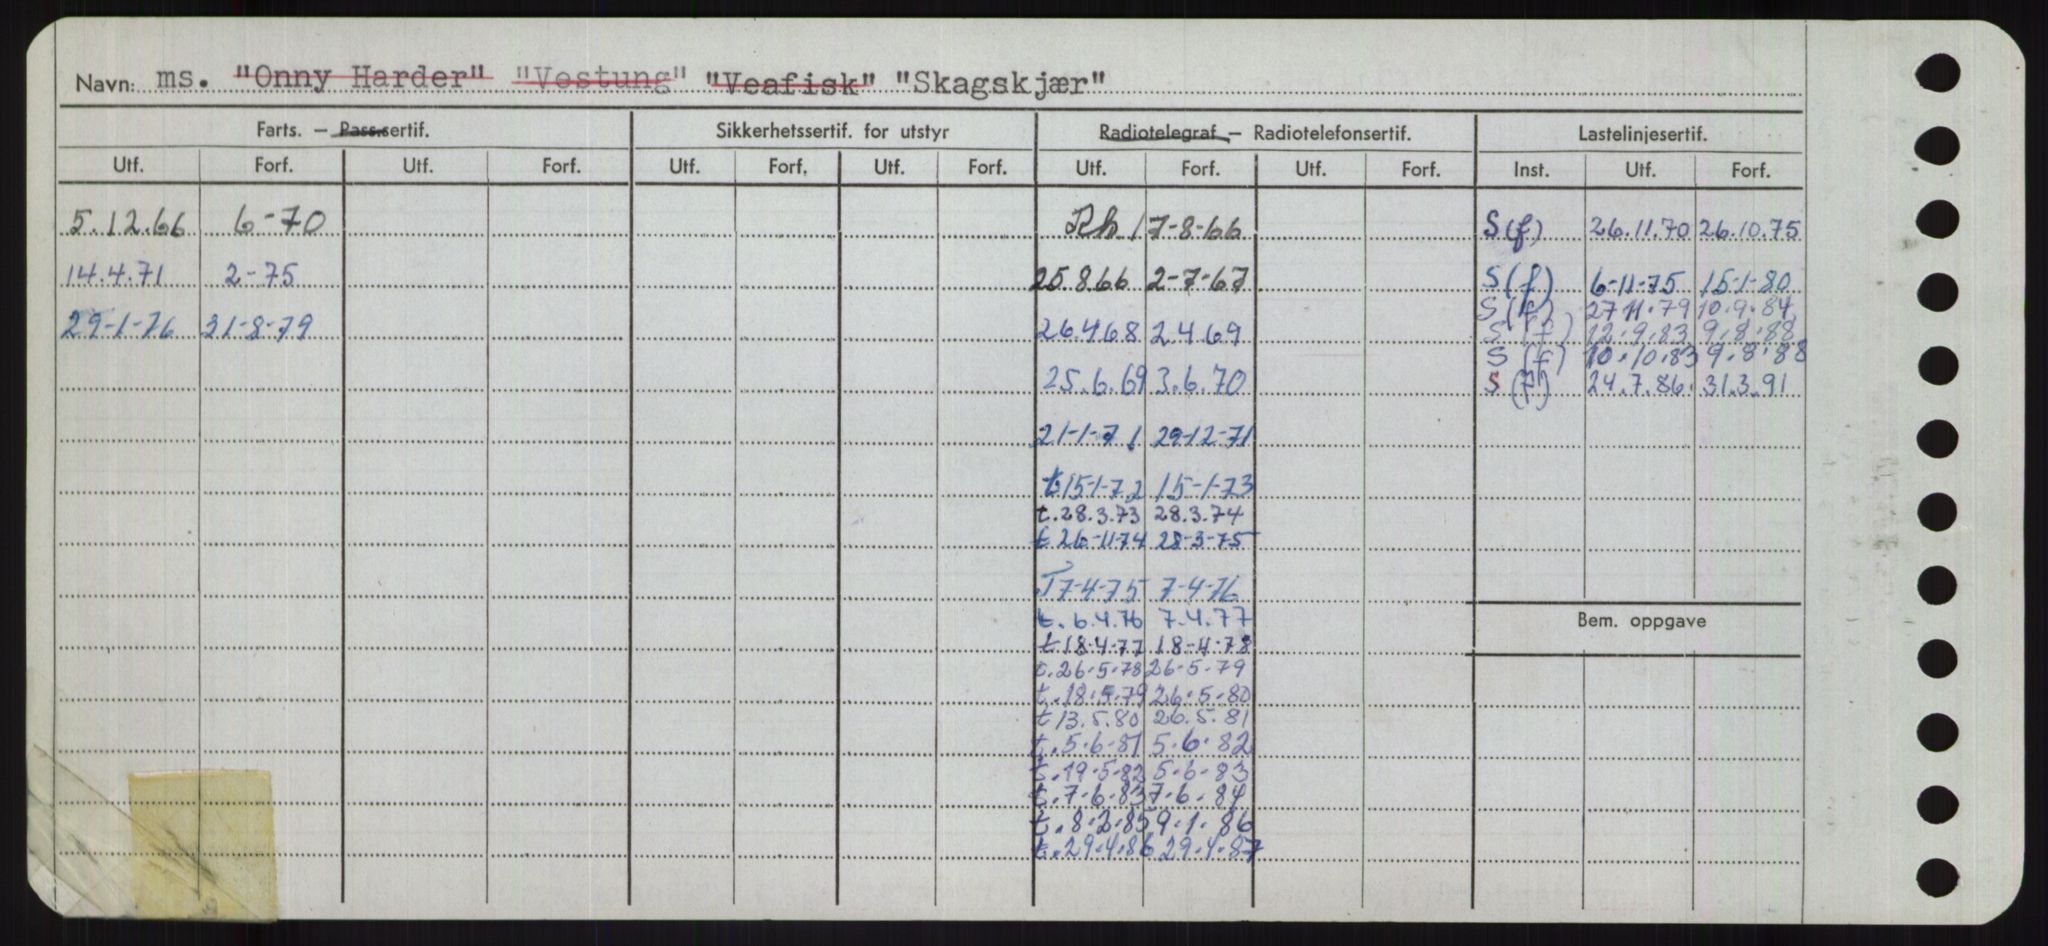 Navn: ms. "Onny Harder" "Vestung" "Veafisk" "Skagskjær"
Farts. — Pass.sertif. Sikkerhetssertif. for utstyr Radiotelegraf — Radiotelefonsertif. Lastelinjesertif.
Utf. Forf. Utf. Forf. Utf. Forf. Utf. Forf. Utf. Forf. Utf. Forf. Inst. Utf. Forf.
5.12.66 6-70 17-8-66 S(f) 26.11.70 26.10.75
14.4.71 2-75 25.8.66 2-7-67 S(f) 6-11-75 15-1-80
S(f) 27.11.79 10.9.84
29-1-76 31-8-79 26.4.68 2.4.69 S(f) 12.9.83 9.8.88
S(f) 10.10.83 9.8.88
25.6.69 3.6.70 S(f) 24.7.86. 31.3.91
21-1-71 29-12-71
t 15-1-72 15-1-73
t.28.3.73 28.3.74
t 26-11-74 28-3-75
T 7-4-75 7-4-76
t. 6.4.76 7.4.77
Bem. oppgave
t 18-4-77 18-4-78
t.26.5.78 26.5.79
t.18.5.79 26.5.80
t 13.5.80 26.5.81
t.5.6.81 5.6.82
t.19.5.82 5.6.83
t.7.6.83 7.6.84
t.8.2.85 9.1.86
t.29.4.86 29.4.87